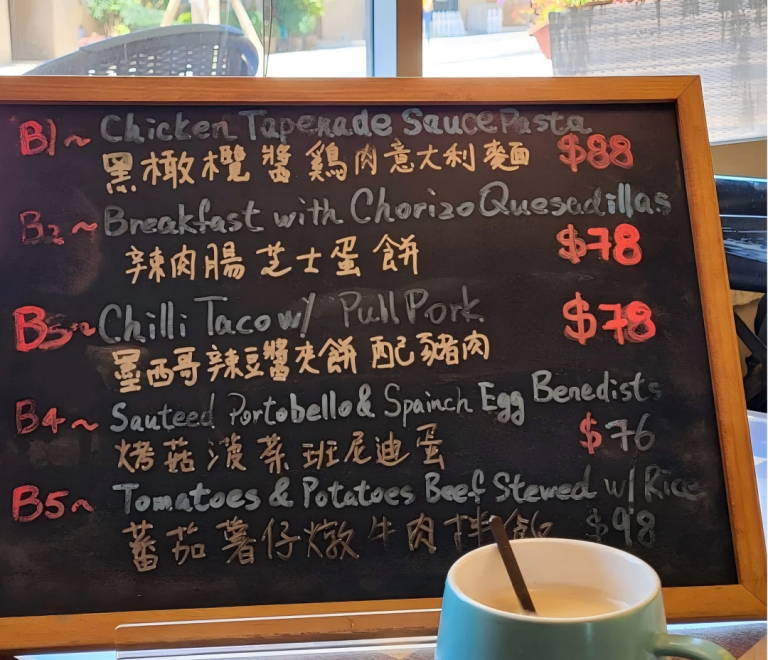 B1~ Chicken Tapenade Sauce Pasta
黑橄欖醬雞肉意大利麵 $88
B2~ Breakfast with Chorizo Quesadillas
辣肉腸芝士蛋餅 $78
B3~ Chilli Taco w/ Pull Pork $78
墨西哥辣豆醬夾餅配豬肉
B4~ Sauteed Portobello & Spainch Egg Benedists
烤菇菠菜班尼迪蛋 $76
B5~ Tomatoes & Potatoes Beef Stewed w/ Rice
蕃茄薯仔燉牛肉拌飯 $98